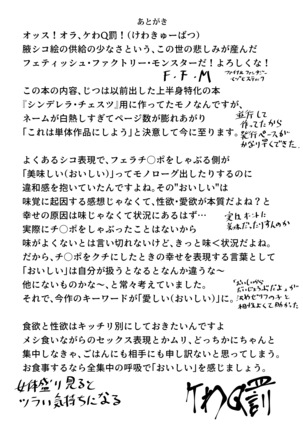 あとがき
オッス！オラ、ケわQ罰！（けわきゅーばつ）
腋シコ絵の供給の少なさという、この世の悲しみが産んだ
フェティッシュ・ファクトリー・モンスターだ！よろしくな！
F・F・M
この本の内容、じつは以前出した上半身特化の本
『シンデレラ・チェスツ』用に作ってたモノなんですが、
ネームが白熱しすぎてページ数が膨れあがり
「これは単体作品にしよう」と決意して今に至ります。
並行して
作ってたから
発行ペースが
かなりすくできた。
よくあるシコ表現で、フェラチ〇ポをしゃぶる側が
「美味しい（おいしい）」ってモノローグ出したりするのに
違和感を抱いていたんですよね。その"おいしい"は
味覚に起因する感想じゃなくて、性欲・愛欲が本質だよね？と
幸せの原因は味じゃなくて状況にあるはず…
実際にチ〇ポをしゃぶったことはないから
味がよくないとは言い切れないけど、きっと味＜状況だよね。
だから、チ〇ポをクチにしたときの幸せを表現する言葉として
「おいしい」は自分が扱うとなるとなんか違うな～
他にないものかな～、と常々考えていました。
それで、今作のキーワードが「愛しい（おいしい）」に。
食欲と性欲はキッチリ別にしておきたいんですよ
メシ食いながらのセックス表現とかムリ、どっちかにちゃんと
集中しなきゃ、ごはんにも相手にも申し訳ないと思ってしまう。
お食事するなら全集中の呼吸で「おいしい」を感じましょう。
女体盛り見ると
ツラい気持ちになる
ケわQ罰